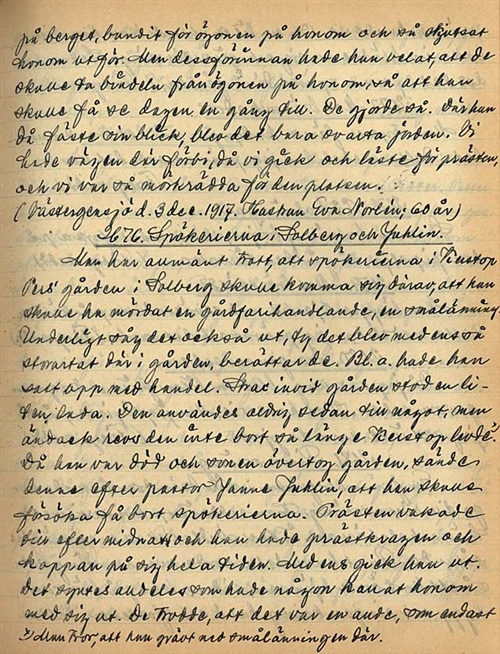 på berget, bundit för ögonen på honom och så skjutsat
honom utför. Men dessförinnan hade han velat, att de
skulle ta bindeln från ögonen på honom, så att han
skulle få se dagen en gång till. De gjorde så. Där han
då fäste sin blick, blev det bara svarta jorden. Vi
hade vägen där förbi, då vi gick och läste för prästen,
och vi var så mörkrädda för den platsen.
(Västergensjö d. 3 dec. 1917. Hustrun Eva Norlin; 60 år)
2676. Spökerierna i Solberg och Juhlin.
Man har allmänt trott, att spökerierna i
Pers' gården i Solberg skulle komma sig därav, att han
skulle ha mördat en gårdfarihandlande, en smålänning.
Underligt såg det också ut, ty det blev med ens så
storartat där i gården, berättar de. Bl. a. hade han
satt opp med handel. Strax invid gården stod en li-
ten lada. Den användes aldrig sedan till något, men
ändock revs den inte bort så länge levde.¹⁾
Då han var död och sonen övertog gården, sände
denne efter pastor Janne Juhlin, att han skulle
försöka få bort spökerierna. Prästen vakade
till efter midnatt och han hade prästkragen och
kappan på sig hela tiden. Med ens gick han ut.
Det syntes alldeles som hade någon kallat honom
med sig ut. De trodde, att det var en ande, som endast
¹⁾ Man tror, att han grävt ned smålänningen där.